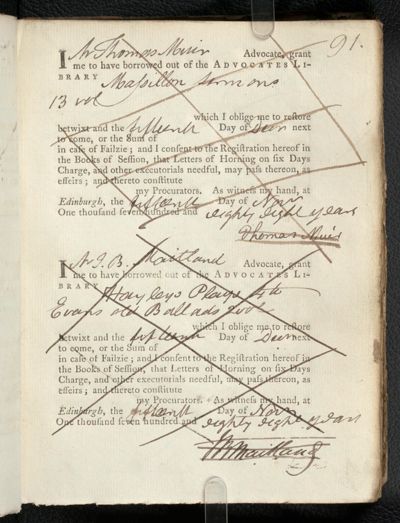 91.
I Mr Thomas Muir Advocate, grant
me to have borrowed out of the ADVOCATES LI-
BRARY Massillon Sermons
13 vol
which I oblige me to restore
betwixt and the fifteenth Day of Decr next
to come, or the Sum of
in case of Failzie; and I consent to the Registration hereof in
the Books of Session, that Letters of Horning on six Days
Charge, and other executorials needful, may pass thereon, as
effeirs; and thereto constitute
my Procurators. As witness my hand, at
Edinburgh, the fifteenth Day of Novr
One thousand seven hundred and eighty eight years
Thomas Muir
I Mr J. B. Maitland Advocate, grant
me to have borrowed out of the ADVOCATES LI-
BRARY Hayley's Plays 4to
Evans old Ballads 2 vol
which I oblige me to restore
betwixt and the fifteenth Day of Decr next
to come, or the Sum of
in case of Failzie; and I consent to the Registration hereof in
the Books of Session, that Letters of Horning on six Days
Charge, and other executorials needful, may pass thereon, as
effeirs; and thereto constitute
my Procurators. As witness my hand, at
Edinburgh, the fifteenth Day of Novr
One thousand seven hundred and eighty eight years
Maitland